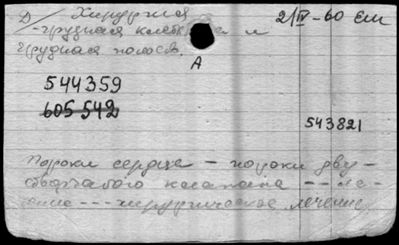 Д/ Хирургия 2/IV-60 Ем
-грудная клетка и
грудная полость.
А
544359
605542
543821
Пороки сердца — пороки дву-
створчатого клапана --- ле-
чение --- хирургическое лечение